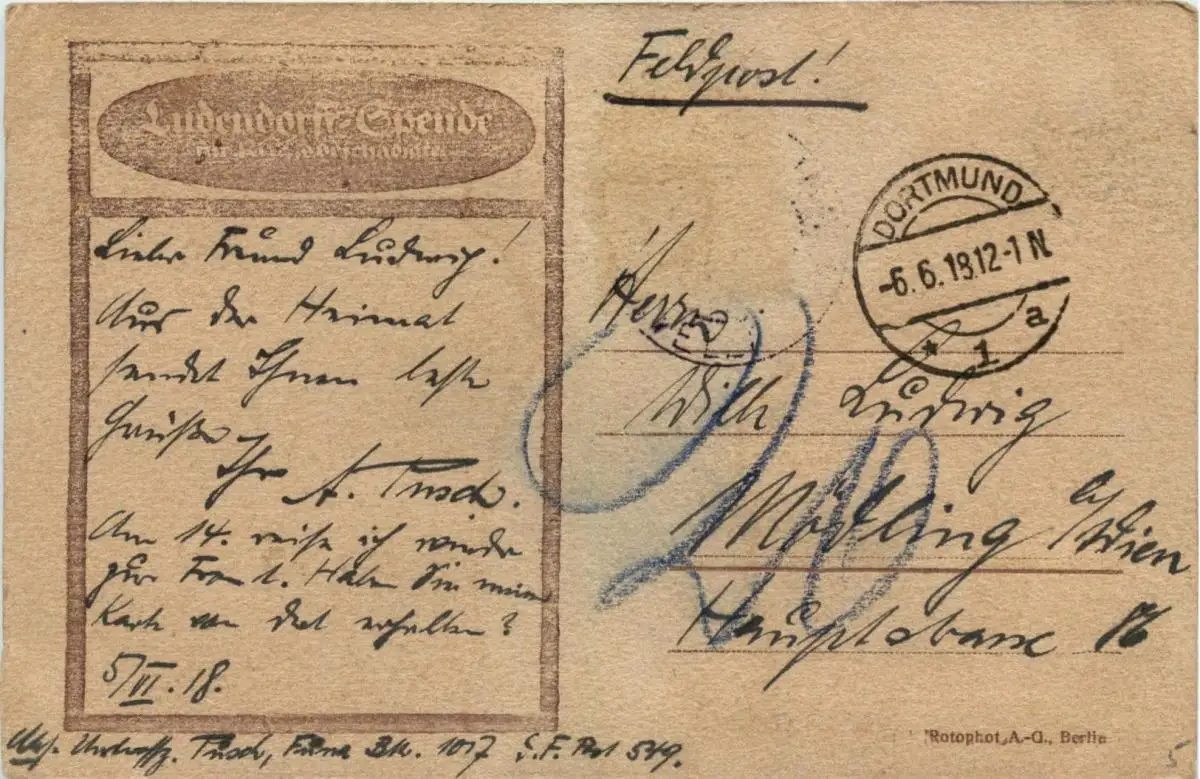 Ludendorff-Spende
für Kriegsbeschädigte
Lieber Freund Ludwig!
Aus der Heimat
sendet Ihnen beste
Grüße
Ihr A. Pusch.
Am 14. reise ich wieder
zur Front. Haben Sie meine
Karte von dort erhalten?
5/VI. 18.
Feldpost!
DORTMUND
-6.6.18.12-1N
* 1 a
Herrn
Wilh. Ludwig
Mödling b/Wien
Hauptstrasse
Pusch, 1017 549.
Rotophot A.-G., Berlin
5